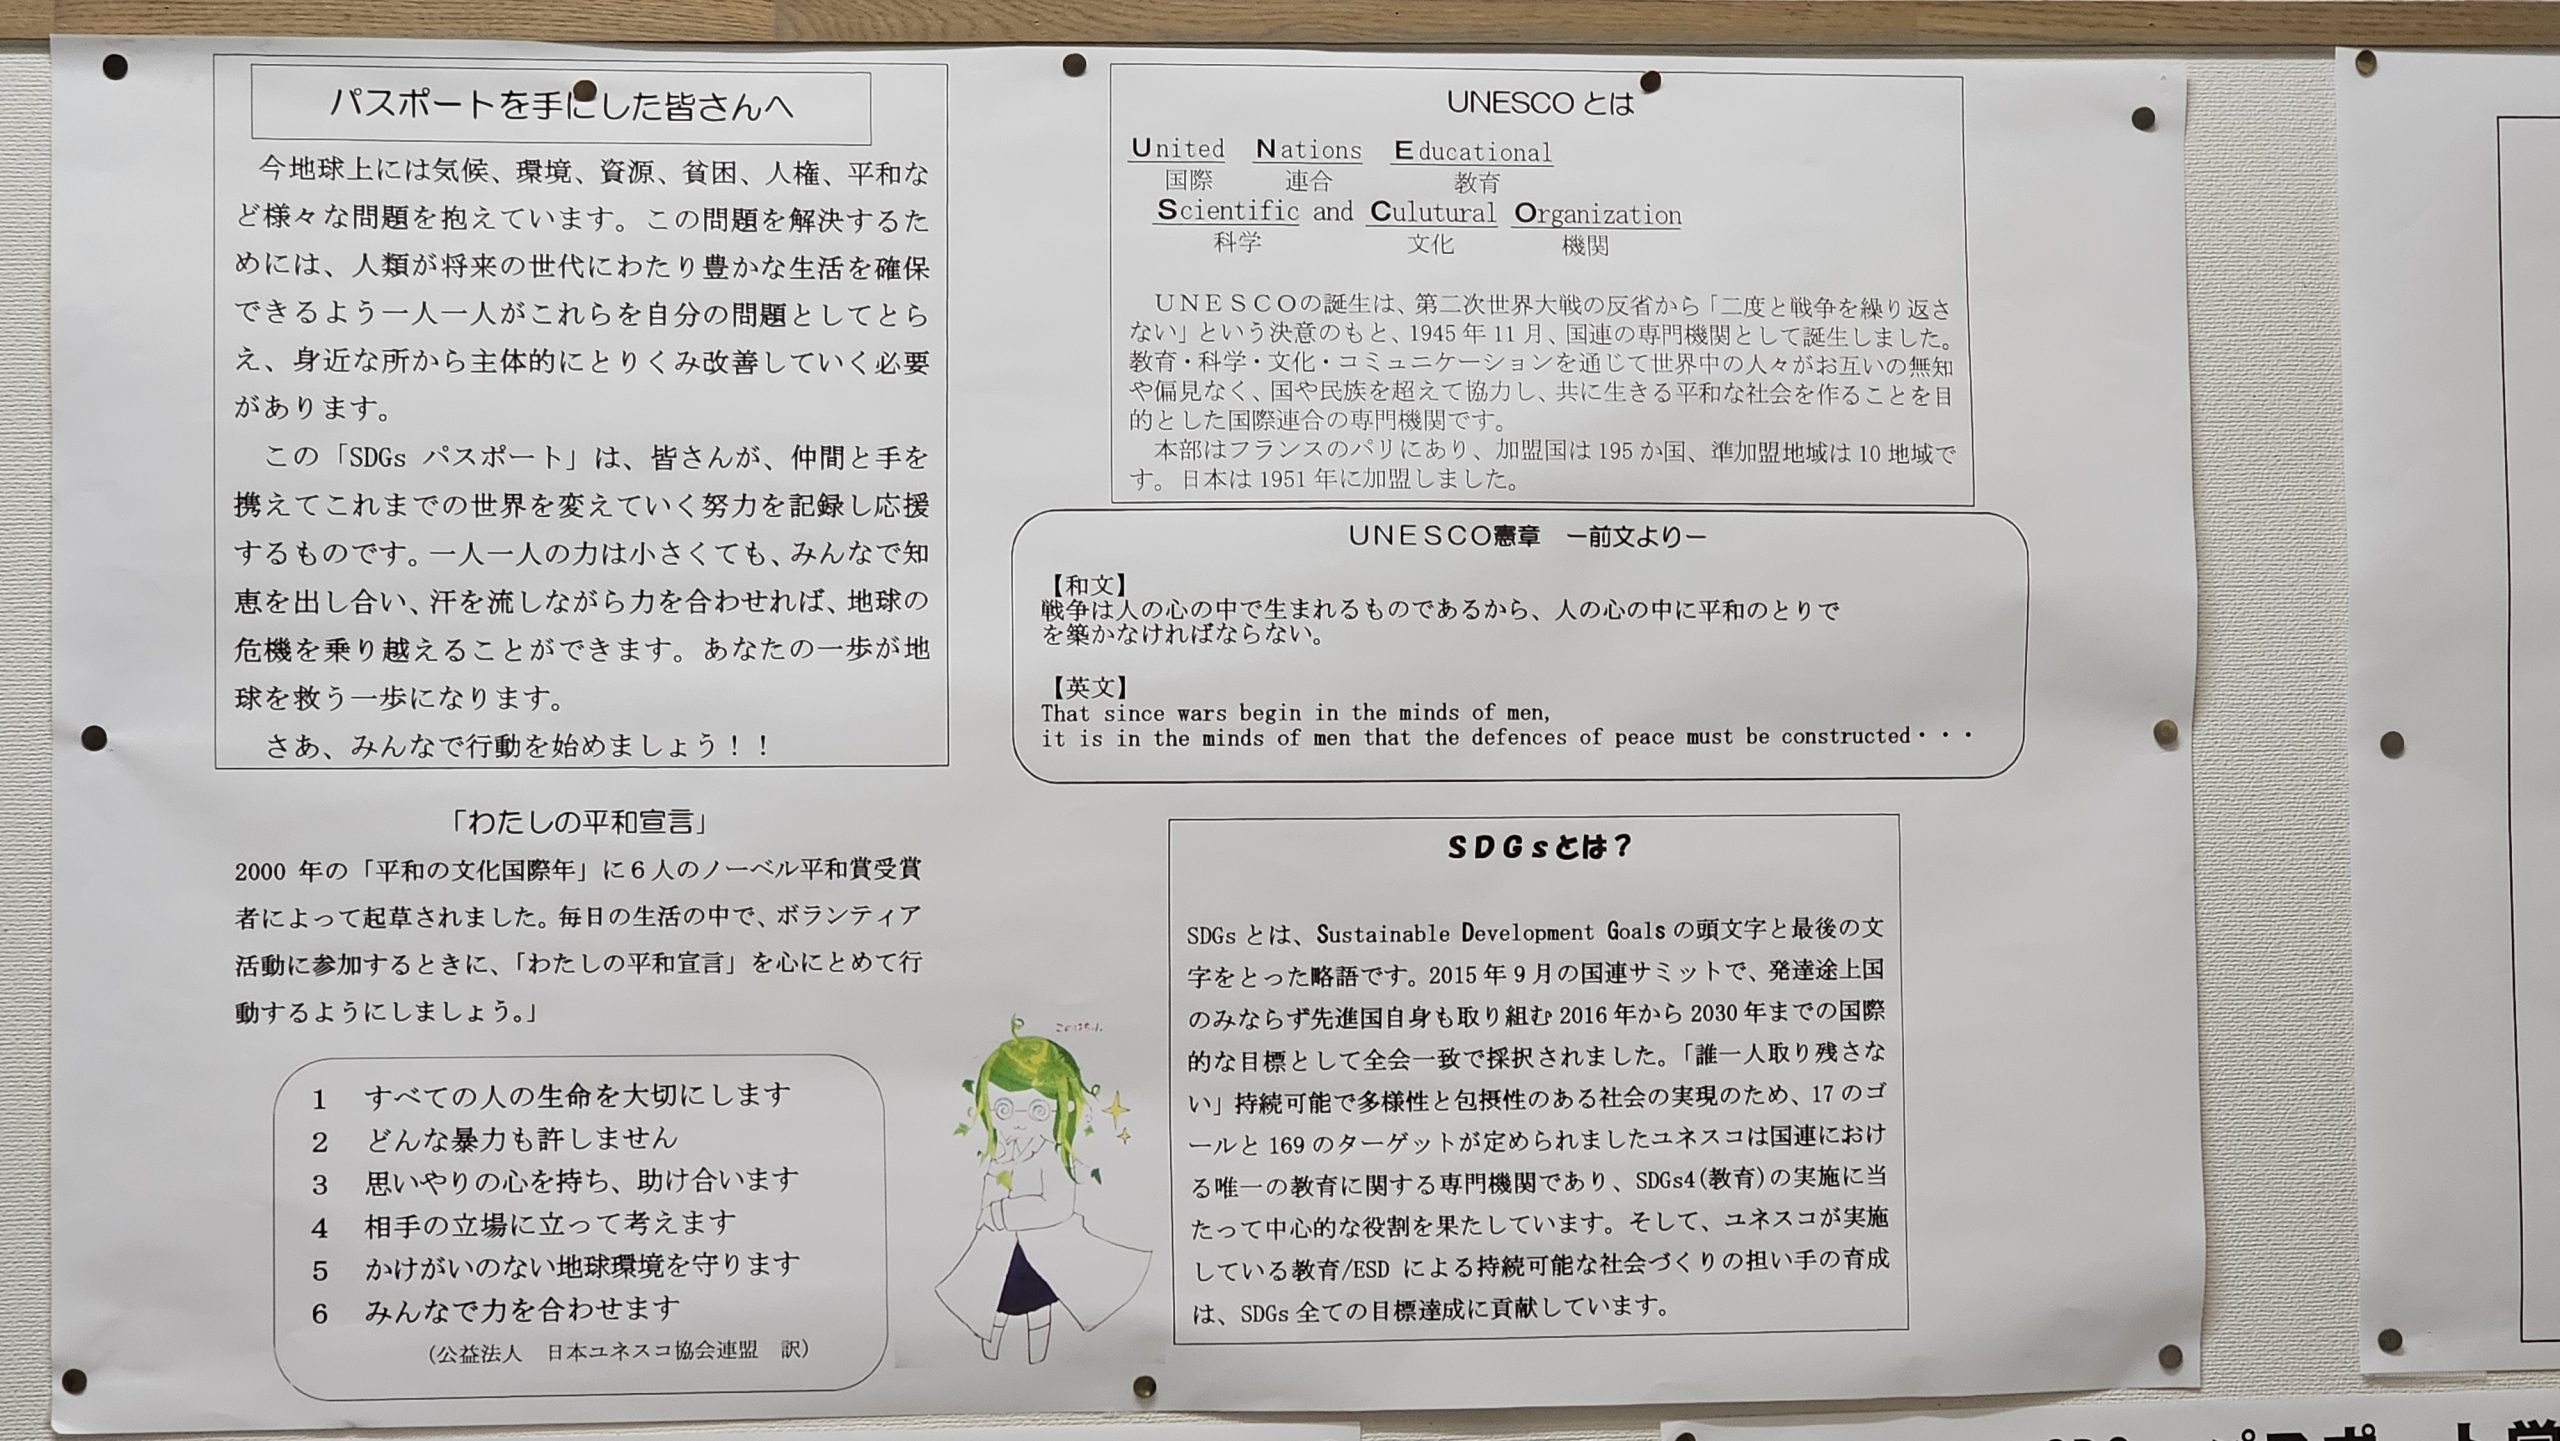 パスポートを手にした皆さんへ
今地球上には気候、環境、資源、貧困、人権、平和な
ど様々な問題を抱えています。この問題を解決するた
めには、人類が将来の世代にわたり豊かな生活を確保
できるよう一人一人がこれらを自分の問題としてとら
え、身近な所から主体的にとりくみ改善していく必要
があります。
この「SDGs パスポート」は、皆さんが、仲間と手を
携えてこれまでの世界を変えていく努力を記録し応援
するものです。一人一人の力は小さくても、みんなで知
恵を出し合い、汗を流しながら力を合わせれば、地球の
危機を乗り越えることができます。あなたの一歩が地
球を救う一歩になります。
さあ、みんなで行動を始めましょう！！
「わたしの平和宣言」
2000 年の「平和の文化国際年」に６人のノーベル平和賞受賞
者によって起草されました。毎日の生活の中で、ボランティア
活動に参加するときに、「わたしの平和宣言」を心にとめて行
動するようにしましょう。」
1 すべての人の生命を大切にします
2 どんな暴力も許しません
3 思いやりの心を持ち、助け合います
4 相手の立場に立って考えます
5 かけがいのない地球環境を守ります
6 みんなで力を合わせます
（公益法人 日本ユネスコ協会連盟 訳）
このはちゃん
UNESCO とは
United Nations Educational
国際 連合 教育
Scientific and Culutural Organization
科学 文化 機関
ＵＮＥＳＣＯの誕生は、第二次世界大戦の反省から「二度と戦争を繰り返さ
ない」という決意のもと、1945 年 11 月、国連の専門機関として誕生しました。
教育・科学・文化・コミュニケーションを通じて世界中の人々がお互いの無知
や偏見なく、国や民族を超えて協力し、共に生きる平和な社会を作ることを目
的とした国際連合の専門機関です。
本部はフランスのパリにあり、加盟国は 195 か国、準加盟地域は 10 地域で
す。日本は 1951 年に加盟しました。
ＵＮＥＳＣＯ憲章 ー前文よりー
【和文】
戦争は人の心の中で生まれるものであるから、人の心の中に平和のとりで
を築かなければならない。
【英文】
That since wars begin in the minds of men,
it is in the minds of men that the defences of peace must be constructed・・・
ＳＤＧｓとは？
SDGs とは、Sustainable Development Goals の頭文字と最後の文
字をとった略語です。2015 年 9 月の国連サミットで、発達途上国
のみならず先進国自身も取り組む 2016 年から 2030 年までの国際
的な目標として全会一致で採択されました。「誰一人取り残さな
い」持続可能で多様性と包摂性のある社会の実現のため、17 のゴ
ールと 169 のターゲットが定められましたユネスコは国連におけ
る唯一の教育に関する専門機関であり、SDGs4(教育)の実施に当
たって中心的な役割を果たしています。そして、ユネスコが実施
している教育/ESD による持続可能な社会づくりの担い手の育成
は、SDGs 全ての目標達成に貢献しています。